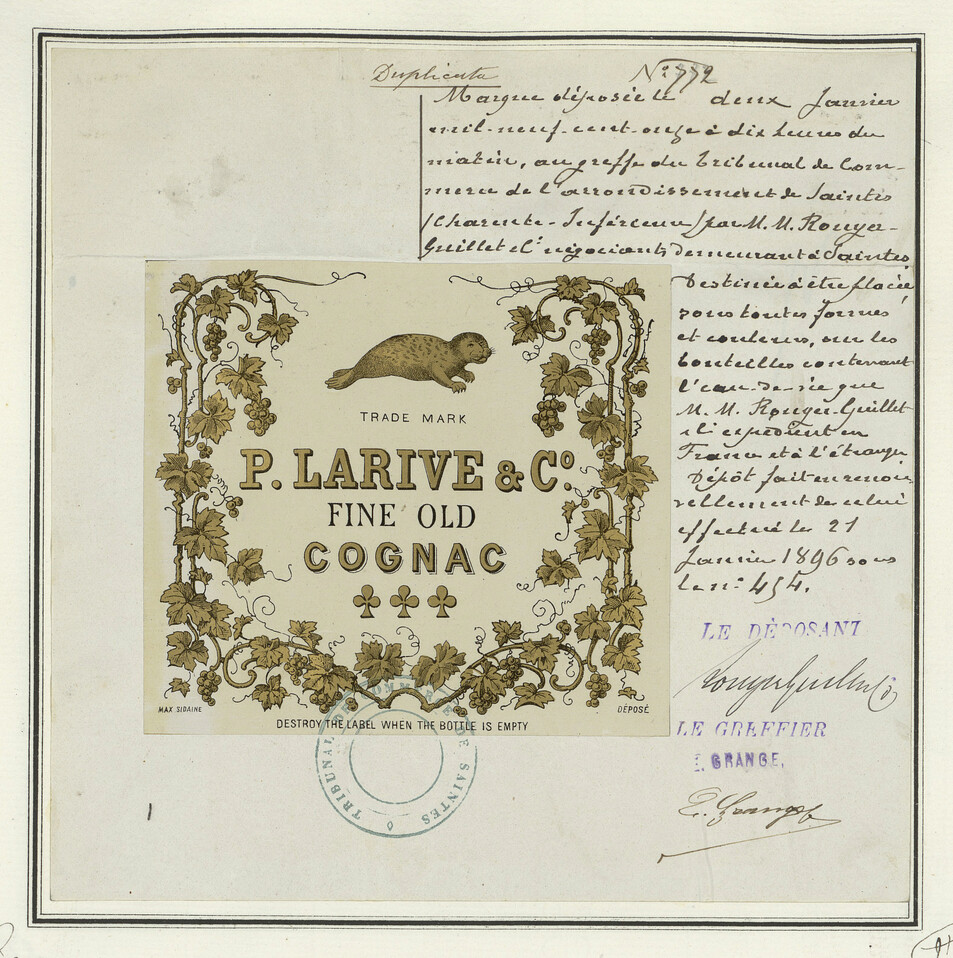 Duplicata
N° 772
Marque déposée le deux Janvier
mil-neuf-cent-onze à dix heures du
matin, au greffe du Tribunal de Com-
merce de l'arrondissement de Saintes
(Charente-Inférieure) par M. M. Rouyer-
Guillet et Cie négociants demeurant à Saintes.
Destinée à être placée
sous toutes formes
et couleurs, sur les
bouteilles contenant
l'eau-de-vie que
M. M. Rouyer-Guillet
et Cie expédient en
France et à l'étranger.
Dépôt fait en renou-
vellement de celui
effectué le 21
Janvier 1896 sous
le n° 454.
TRADE MARK
P. LARIVE & Cº.
FINE OLD
COGNAC
MAX SIDAINE
DÉPOSÉ
DESTROY THE LABEL WHEN THE BOTTLE IS EMPTY
TRIBUNAL DE COMMERCE DE SAINTES
LE DÉPOSANT
Rouyer Guillet & Co
LE GREFFIER
E. GRANGE.
E. Grange